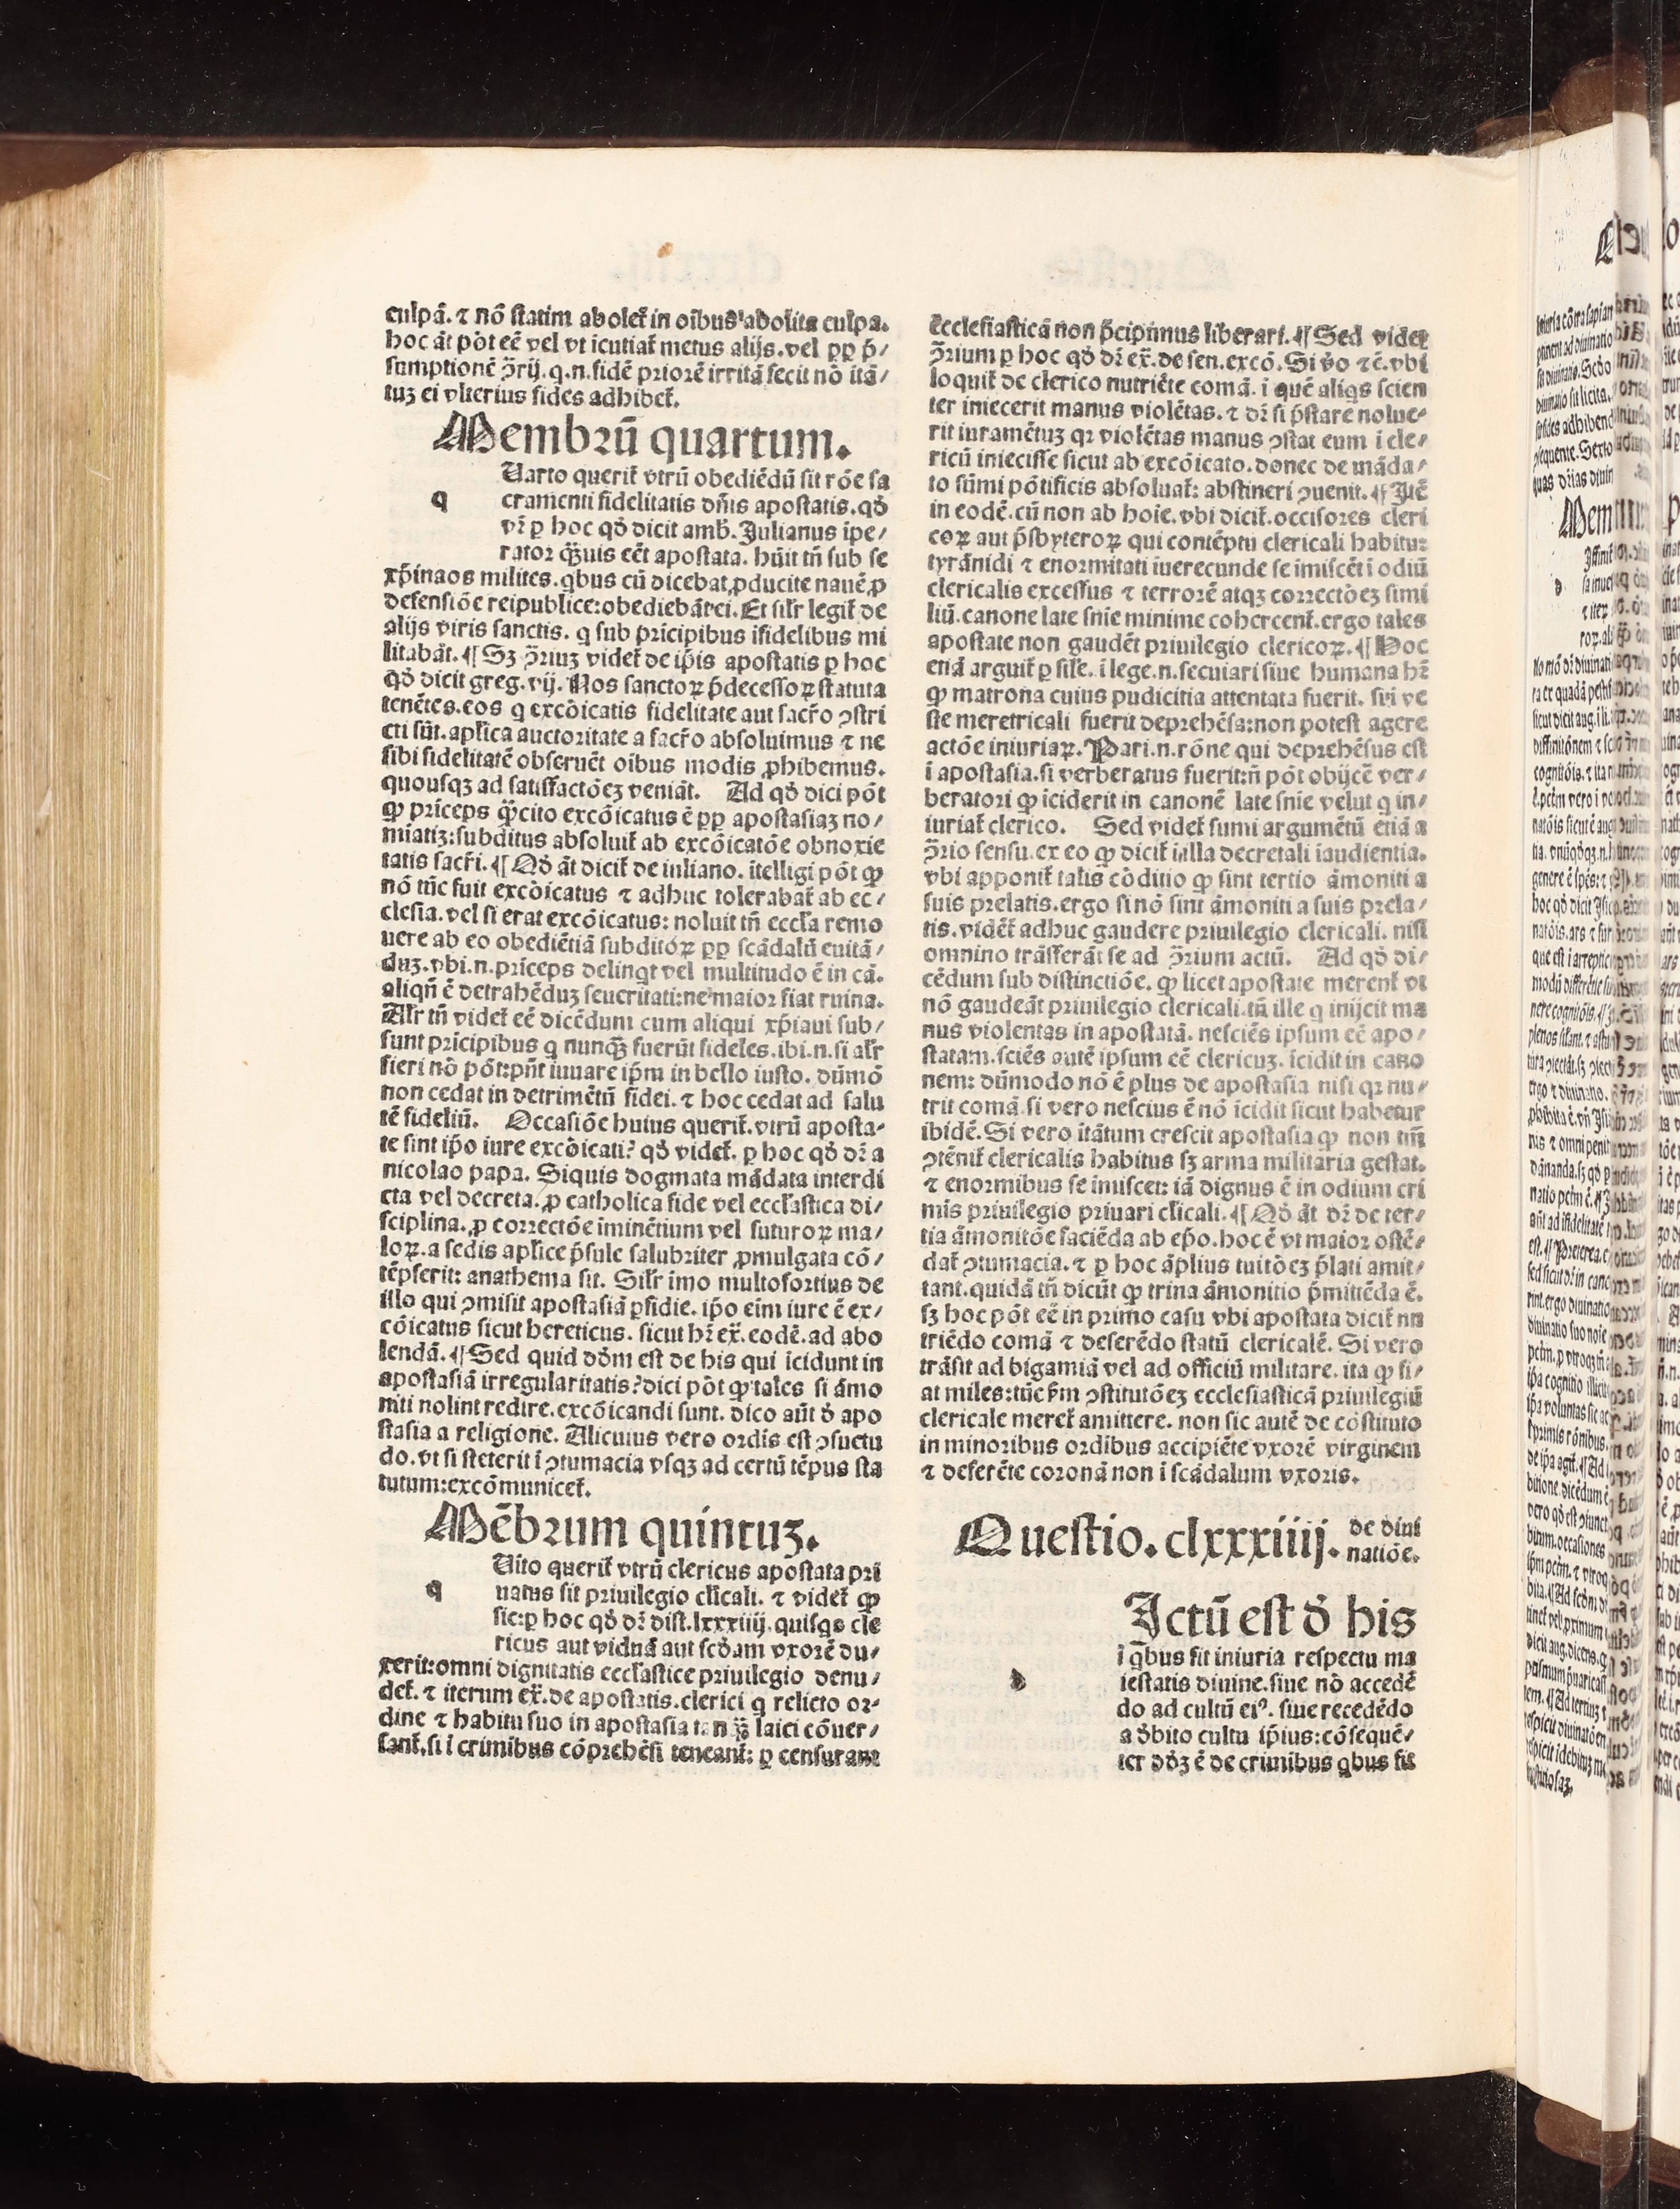 culpā. ⁊ nō statim abolet̄ in oībus abolita culpa.
hoc āt pōt eē vel vt īcutiat̄ metus alijs. vel ꝓp p̄/
sumptionē ꝯ̄rij. q.n. fidē priorē irritā fecit nō itā/
tuꝫ ei vlterius fides adhibet̄.
Membrū quartum.
Uarto querit̄ vtrū obediēdū sit rōe sa
q cramenti fidelitatis dn̄is apostatis. qd̄
vr̄ ꝑ hoc qd̄ dicit amb. Julianus īpe/
rator q̄ȝuis eēt apostata. hūit tn̄ sub se
xp̄inaos milites. qbus cū dicebat, ꝓducite nauē, ꝓ
defensiōe reipublice: obediebāt ei. Et sil̄r legit̄ de
alijs viris sanctis. q sub prīcipibus īfidelibus mi
litabāt. ¶ Sꝫ ꝯ̄riuꝫ videt̄ de ip̄is apostatis ꝑ hoc
qd̄ dicit greg. vij. Nos sanctoꝝ p̄decessoꝝ statuta
tenētes. eos q excōicatis fidelitate aut sacr̄o ꝯstri
cti sūt. apl̄ica auctoritate a sacr̄o absoluimus ⁊ ne
sibi fidelitatē obseruēt oībus modis ꝓhibemus.
quousqꝫ ad satisfactōeꝫ veniāt. Ad qd̄ dici pōt
ꝙ prīceps q̄ȝcito excōicatus ē ꝓp apostasiaꝫ no/
mīatiꝫ: subditus absoluit̄ ab excōicatōe obnoxie
tatis sacr̄i. ¶ Qd̄ āt dicit̄ de iuliano. ītelligi pōt ꝙ
nō tūc fuit excōicatus ⁊ adhuc tolerabat̄ ab ec/
clesia. vel si erat excōicatus: noluit tn̄ eccl̄a remo
uere ab eo obediētiā subditōꝝ ꝓp scādalū euitā/
duꝫ. vbi.n. prīceps delinqt vel multitudo ē in cā.
aliqn̄ ē detrahēduꝫ seueritati: ne maior fiat ruina.
Al̄r tn̄ videt̄ eē dicēdum cum aliqui xp̄iaui sub/
sunt prīcipibus q nunq̄ȝ fuerūt fideles. ibi.n. si al̄r
fieri nō pōt: pn̄t iuuare ip̄m in bello iusto. dūmō
non cedat in detrimētū fidei. ⁊ hoc cedat ad salu
tē fideliū. Occasiōe huius querit̄. vtrū aposta-
te sint ip̄o iure excōicati? qd̄ videt̄. ꝑ hoc qd̄ dr̄ a
nicolao papa. Siquis dogmata mādata interdi
cta vel decreta. ꝓ catholica fide vel eccl̄astica di/
sciplina. ꝓ correctōe iminētium vel futuroꝝ ma/
loꝝ. a sedis apl̄ice p̄sule salubriter ꝓmulgata cō/
tēpserit: anathema sit. Sil̄r īmo multofortius de
illo qui ꝯmisit apostasiā ꝑfidie. ip̄o eīm iure ē ex/
cōicatus sicut hereticus. sicut hr̄ ex̄. eodē. ad abo
lendā. ¶ Sed quid dd̄m est de his qui īcidunt in
apostasiā irregularitatis? dici pōt ꝙ tales si āmo
niti nolint redire. excōicandi sunt. dico aūt d̄ apo
stasia a religione. Alicuius vero ordīs est ꝯsuetu
do. vt si steterit ī ꝯtumacia vsqꝫ ad certū tēpus sta
tutum: excōmunicet̄.
Mēbrum quintuꝫ.
Uito querit̄ vtrū clericus apostata pri
q uatus sit priuilegio cl̄icali. ⁊ videt̄ ꝙ
sic: ꝑ hoc qd̄ dr̄ dist. lxxxiiij. quisqs cle
ricus aut viduā aut scd̄am vxorē du/
xerit: omni dignitatis eccl̄astice priuilegio denu/
det̄. ⁊ iterum ex̄. de apostatis. clerici q relicto or-
dine ⁊ habitu suo in apostasia tanq̄ȝ laici cōuer/
sant̄. si ī crimībus cōprehēsi teneant̄: ꝑ censuram
Ecclesiasticā non p̄cipimus liberari. ¶ Sed videt̄
ꝯ̄rium ꝑ hoc qd̄ dr̄ ex̄. de sen. excō. Si v̄o ⁊c̄. vbi
loquit̄ de clerico nutriēte comā. ī quē aliqs scien
ter iniecerit manus violētas. ⁊ dr̄ si p̄stare nolue-
rit iuramētuꝫ qꝛ violētas manus ꝯstat eum ī cle/
ricū iniecisse sicut ab excōicato. donec de māda/
to sūmi pōtificis absoluat̄: abstineri ꝯuenit. ¶ Itē
in eodē. cū non ab hoīe. vbi dicit̄. occisores cleri
coꝝ aut p̄sbyteroꝝ qui contēptu clericali habitu:
tyrānidi ⁊ enormitati iuerecunde se imiscēt ī odiū
clericalis excessus ⁊ terrorē atqꝫ correctōeꝫ simi
liū. canone late sn̄ie minime cohercent̄. ergo tales
apostate non gaudēt priuilegio clericoꝝ. ¶ Hoc
etiā arguit̄ ꝑ sil̄e. ī lege.n. seculari siue humana hr̄
ꝙ matrona cuius pudicitia attentata fuerit. sui ve
ste meretricali fuerit deprehēsa: non potest agere
actōe iniuriaꝝ. Pari.n. rōne qui deprehēsus est
ī apostasia. si verberatus fuerit: n̄ pōt obijcē ver/
beratori ꝙ īciderit in canonē late sn̄ie velut q in/
iuriat̄ clerico. Sed videt̄ sumi argumētū etiā a
ꝯ̄rio sensu. ex eo ꝙ dicit̄ ī illa decretali īaudientia.
vbi apponit̄ talis cōditio ꝙ sint tertio āmoniti a
suis prelatis. ergo si nō sint āmoniti a suis prela/
tis. vidēt̄ adhuc gaudere priuilegio clericali. nisi
omnino trāsferāt se ad ꝯ̄rium actū. Ad qd̄ di/
cēdum sub distinctiōe. ꝙ licet apostate merent̄ vt
nō gaudeāt priuilegio clericali. tn̄ ille q inijcit ma
nus violentas in apostatā. nesciēs ipsum eē apo/
statam. sciēs autē ipsum eē clericuꝫ. īcidit in cano
nem: dūmodo nō ē plus de apostasia nisi qꝛ nu/
trit comā. si vero nescius ē nō īcidit sicut habetur
ibidē. Si vero ītātum crescit apostasia ꝙ non tm̄
ꝯtēnit̄ clericalis habitus sꝫ arma militaria gestat.
⁊ enormibus se īmiscet: iā dignus ē in odium cri
mīs priuilegio priuari cl̄icali. ¶ Qd̄ āt dr̄ de ter/
tia āmonitōe faciēda ab ep̄o. hoc ē vt maior ostē/
dat̄ ꝯtumacia. ⁊ ꝑ hoc āplius tuitōeꝫ p̄lati amit/
tant. quidā tn̄ dicūt ꝙ trina āmonitio p̄mittēda ē.
sꝫ hoc pōt eē in primo casu vbi apostata dicit̄ nu
triēdo comā ⁊ deserēdo statū clericalē. Si vero
trāsit ad bigamiā vel ad officiū militare. ita ꝙ fi/
at miles: tūc ẜm ꝯstitutōeꝫ ecclesiasticā priuilegiū
clericale meret̄ amittere. non sic autē de cōstituto
in minoribus ordibus accipiēte vxorē virginem
⁊ deferēte coronā non ī scādalum vxoris.
Questio. clxxxiiij. de diui
natiōe.
Ictū est d̄ his
ī qbus fit iniuria respectu ma
d iestatis diuine. siue nō accedē
do ad cultū eiꝰ. siue recedēdo
a d̄bito cultu ip̄ius: cōsequē/
ter dd̄ꝫ ē de crimībus qbus fit